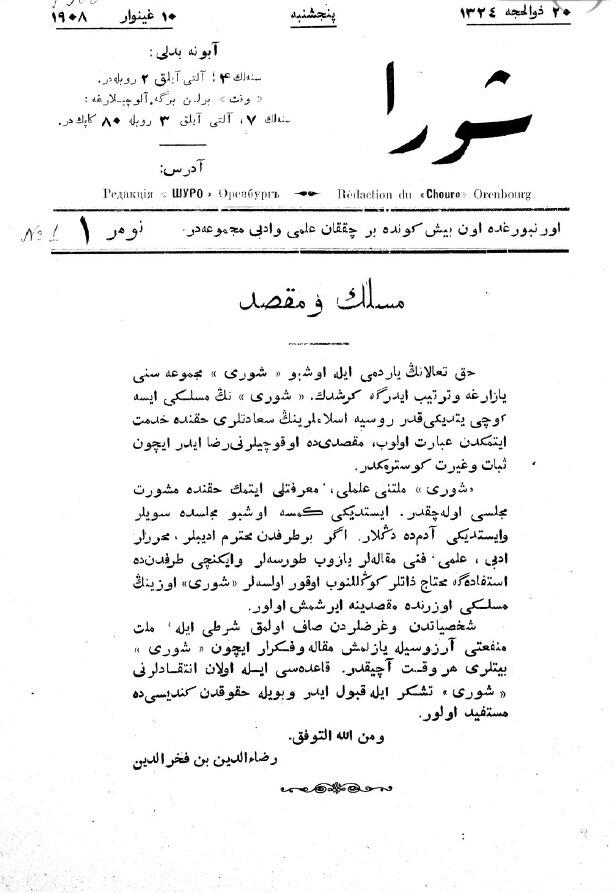 ٢٠ ذوالحجه ١٣٢٤
پنجشنبه
١٠ غينوار ١٩٠٨
شورا
آبونه بدلی:
سنه‌لك ٤؛ آلتی آيلق ٢ روبله‌در.
« وقت » برلن برگه آلوچيلارغه:
سنه‌لك ٧، آلتی آيلق ٣ روبله ٨٠ كاپك‌در.
آدرس:
Редакція « ШУРО» Оренбургъ
Rédaction du «Chouro» Orenbourg
اورنبورغده اون بيش كونده بر چققان علمی وادبی مجموعه‌در.
نومر ١
№ 1
مسلك و مقصد
حق تعالانڭ ياردمی ايله اوشبو « شوری » مجموعه سنی
يازارغه وترتيب ايدرگه كرشدك. « شوری » نڭ مسلكی ايسه
كوچی يتديكی قدر روسيه اسلاملرينڭ سعادتلری حقنده خدمت
ايتمكدن عبارت اولوب، مقصدی‌ده اوقوچيلرنی رضا ايدر ايچون
ثبات وغيرت كوسترمكدر.
«شوری» ملتنی علملی، معرفتلی ايتمك حقنده مشورت
مجلسی اوله‌چقدر. ايستديكی كمسه اوشبو مجلسده سويلر
وايستديكی آدم‌ده دڭلار. اگر برطرفدن محترم اديبلر، محررلر
ادبی، علمی، فنی مقاله‌لر يازوب طورسه‌لر وايكنچی طرفدن‌ده
استفاده‌گه محتاج ذاتلر كوڭللنوب اوقور اولسه‌لر «شوری» اوزينڭ
مسلكی اوزرنده مقصدينه ايرشمش اولور.
شخصياتدن وغرضلردن صاف اولمق شرطی ايله، ملت
منفعتی آرزوسيله يازلمش مقاله وفكرلر ايچون « شوری »
بيتلری هر وقت آچيقدر. قاعده‌سی ايله اولان انتقادلرنی
« شوری » تشكر ايله قبول ايدر وبويله حقوقدن كنديسی‌ده
مستفيد اولور.
ومن الله التوفق.
رضاءالدين بن فخرالدين